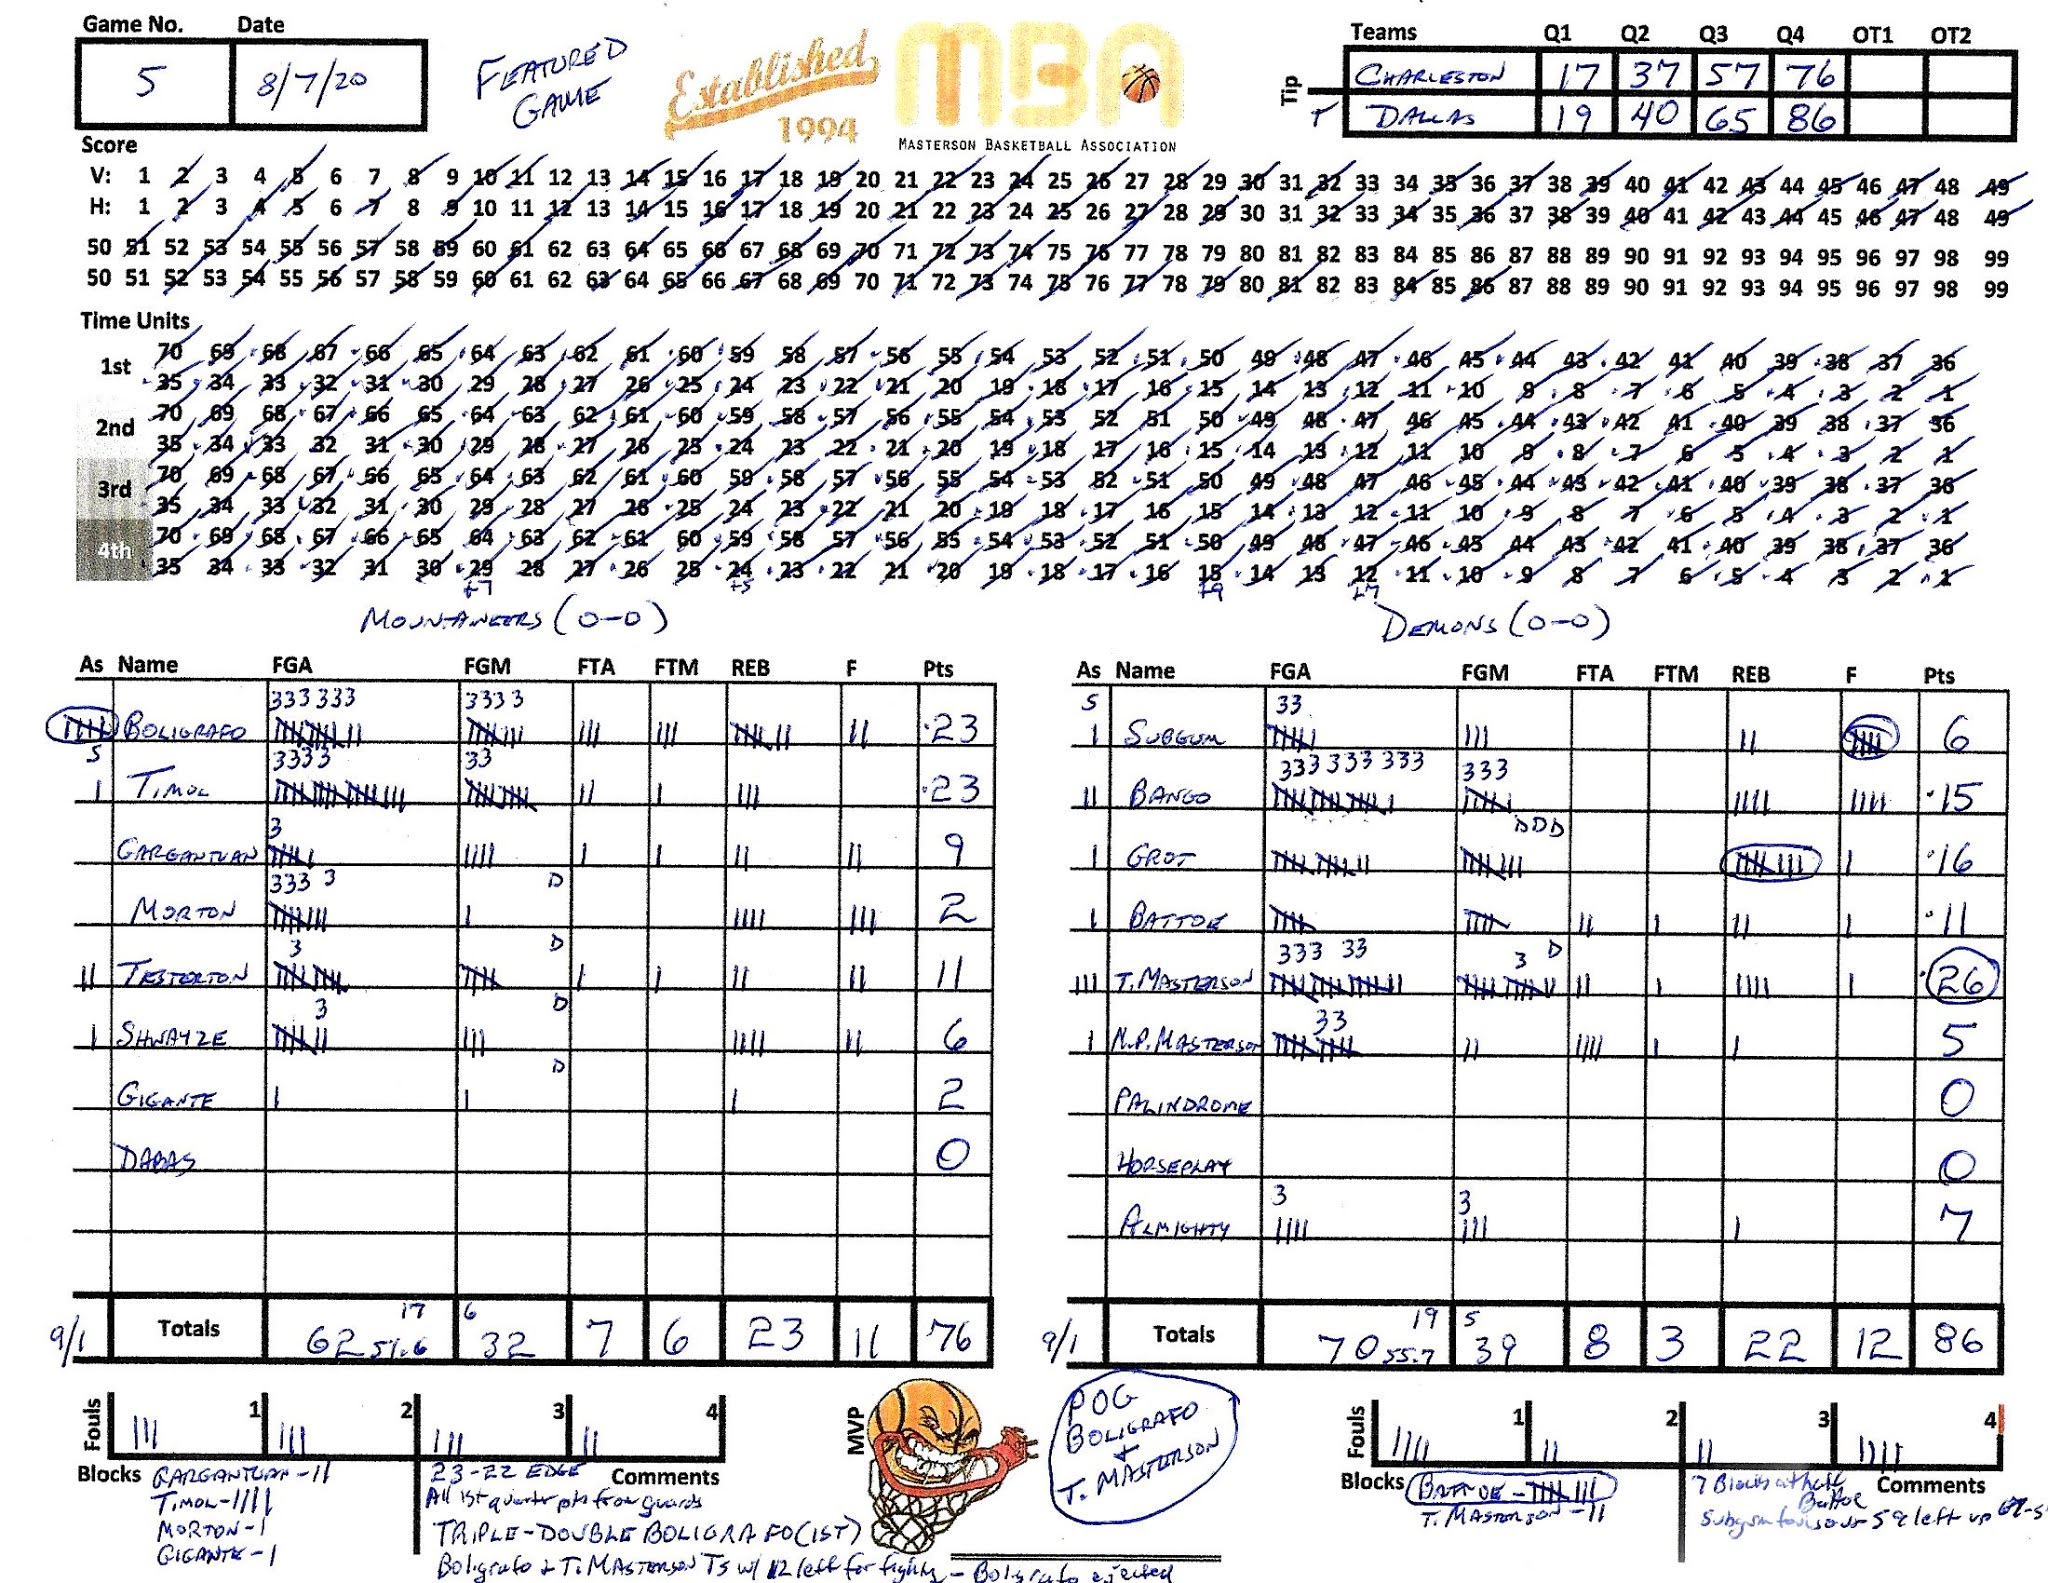 Game No. Date
5 8/7/20
FEATURED
GAME
Established
1994
MBA
MASTERSON BASKETBALL ASSOCIATION
Teams Q1 Q2 Q3 Q4 OT1 OT2
Tip
CHARLESTON 17 37 57 76
T DALLAS 19 40 65 86
Score
V: 1 2 3 4 5 6 7 8 9 10 11 12 13 14 15 16 17 18 19 20 21 22 23 24 25 26 27 28 29 30 31 32 33 34 35 36 37 38 39 40 41 42 43 44 45 46 47 48 49
H: 1 2 3 4 5 6 7 8 9 10 11 12 13 14 15 16 17 18 19 20 21 22 23 24 25 26 27 28 29 30 31 32 33 34 35 36 37 38 39 40 41 42 43 44 45 46 47 48 49
50 51 52 53 54 55 56 57 58 59 60 61 62 63 64 65 66 67 68 69 70 71 72 73 74 75 76 77 78 79 80 81 82 83 84 85 86 87 88 89 90 91 92 93 94 95 96 97 98 99
50 51 52 53 54 55 56 57 58 59 60 61 62 63 64 65 66 67 68 69 70 71 72 73 74 75 76 77 78 79 80 81 82 83 84 85 86 87 88 89 90 91 92 93 94 95 96 97 98 99
Time Units
1st 70 69 68 67 66 65 64 63 62 61 60 59 58 57 56 55 54 53 52 51 50 49 48 47 46 45 44 43 42 41 40 39 38 37 36
35 34 33 32 31 30 29 28 27 26 25 24 23 22 21 20 19 18 17 16 15 14 13 12 11 10 9 8 7 6 5 4 3 2 1
2nd 70 69 68 67 66 65 64 63 62 61 60 59 58 57 56 55 54 53 52 51 50 49 48 47 46 45 44 43 42 41 40 39 38 37 36
35 34 33 32 31 30 29 28 27 26 25 24 23 22 21 20 19 18 17 16 15 14 13 12 11 10 9 8 7 6 5 4 3 2 1
3rd 70 69 68 67 66 65 64 63 62 61 60 59 58 57 56 55 54 53 52 51 50 49 48 47 46 45 44 43 42 41 40 39 38 37 36
35 34 33 32 31 30 29 28 27 26 25 24 23 22 21 20 19 18 17 16 15 14 13 12 11 10 9 8 7 6 5 4 3 2 1
4th 70 69 68 67 66 65 64 63 62 61 60 59 58 57 56 55 54 53 52 51 50 49 48 47 46 45 44 43 42 41 40 39 38 37 36
35 34 33 32 31 30 29 28 27 26 25 24 23 22 21 20 19 18 17 16 15 14 13 12 11 10 9 8 7 6 5 4 3 2 1
+7 +5 +9 +7
MOUNTAINEERS (0-0)
As Name FGA FGM FTA FTM REB F Pts
333 333 3333
BOLIGRAFO 23
5 3333 33
TIMOL 23
3
GARGANTUAN 9
333 3 D
MORTON 2
3 D
TESTERTON 11
3 D
SHWAYZE 6
D
GIGANTE 2
DABAS 0
17 6
9/1 Totals 62 51.6 32 7 6 23 11 76
DEMONS (0-0)
As Name FGA FGM FTA FTM REB F Pts
5 33
SUBGUM 6
333 333 333 333
BANGO 15
DDD
GROT 16
BATTOE 11
333 33 3 D
T. MASTERSON 26
33
M.P. MASTERSON 5
PALINDROME 0
HORSEPLAY 0
3 3
ALMIGHTY 7
19 5
9/1 Totals 70 55.7 39 8 3 22 12 86
Fouls 1 2 3 4
Blocks GARGANTUAN - II
TIMOL - IIII
MORTON - I
GIGANTE - I
23-22 EDGE Comments
All 1st quarter pts from guards
TRIPLE-DOUBLE BOLIGRAFO (1ST)
Boligrafo + T. MASTERSON Ts w/ 12 left for fighting - Boligrafo ejected
MVP
POG
BOLIGRAFO
+
T. MASTERSON
Fouls 1 2 3 4
Blocks BATTOE -
T. MASTERSON - II
7 Blocks at half Comments
Battoe
Subgum fouls out 59 left up